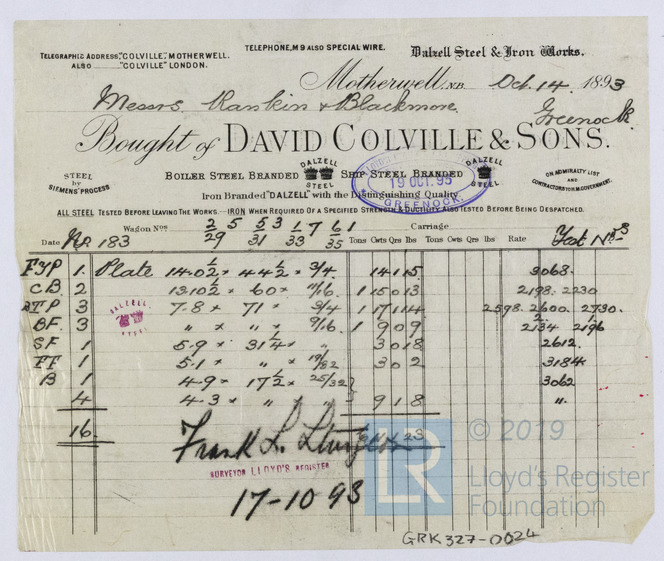 TELEGRAPHIC ADDRESS, "COLVILLE", MOTHERWELL.
ALSO "COLVILLE" LONDON.
TELEPHONE, No 9 ALSO SPECIAL WIRE.
Dalzell Steel & Iron Works.
Motherwell, N.B. Oct. 14. 1893
Messrs Rankin & Blackmore, Greenock.
Bought of DAVID COLVILLE & SONS.
STEEL by SIEMENS' PROCESS
BOILER STEEL BRANDED DALZELL STEEL SHIP STEEL BRANDED DALZELL STEEL
ON ADMIRALTY LIST AND CONTRACTORS FOR H.M. GOVERNMENT.
19 OCT. 95
GREENOCK.
Iron Branded "DALZELL" with the Distinguishing Quality
ALL STEEL TESTED BEFORE LEAVING THE WORKS.—IRON WHEN REQUIRED OF A SPECIFIED STRENGTH & DUCTILITY ALSO TESTED BEFORE BEING DESPATCHED.
Wagon Nos 2/29 5 5/31 3 1/33 7 6/35 1 Carriage
Date 183 Tons Cwts Qrs lbs Tons Cwts Qrs lbs Rate Test Nos
1 Plate 14.0½ × 4.4½ × 3/4 14 1 15 3068.
CB 2 13.10½ × 60 × 11/16 1 15 0 13 2198. 2230
BTP 3 7.8 × 71 × 3/4 1 17 1 14 2598. 2600. 2730.
BF. 3 " × " × 9/16 1 9 0 9 2134 2196
SF 1 5.9 × 31¼ × " 3 0 18 2612.
FF 1 5.1 × " × 19/32 3 0 2 3184
B 1 4.9 × 17½ × 25/32 3062
4 4.3 × " " 9 1 8 "
16
DALZELL STEEL
Frank L. Sturgeon
SURVEYOR LLOYD'S REGISTER
17-10 93
LR © 2019
Lloyd's Register
Foundation
GRK327-0024